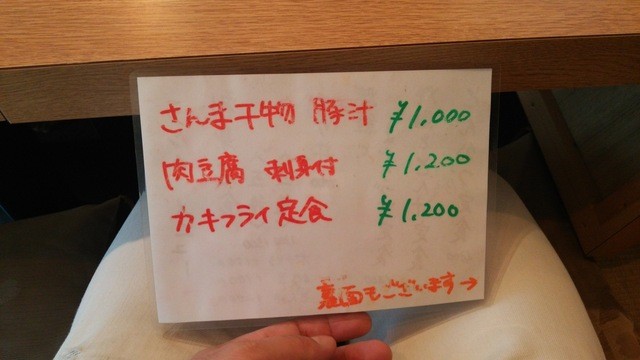 さんま干物 豚汁 ¥1,000
肉豆腐 刺身付 ¥1,200
カキフライ定食 ¥1,200
裏面もございます→